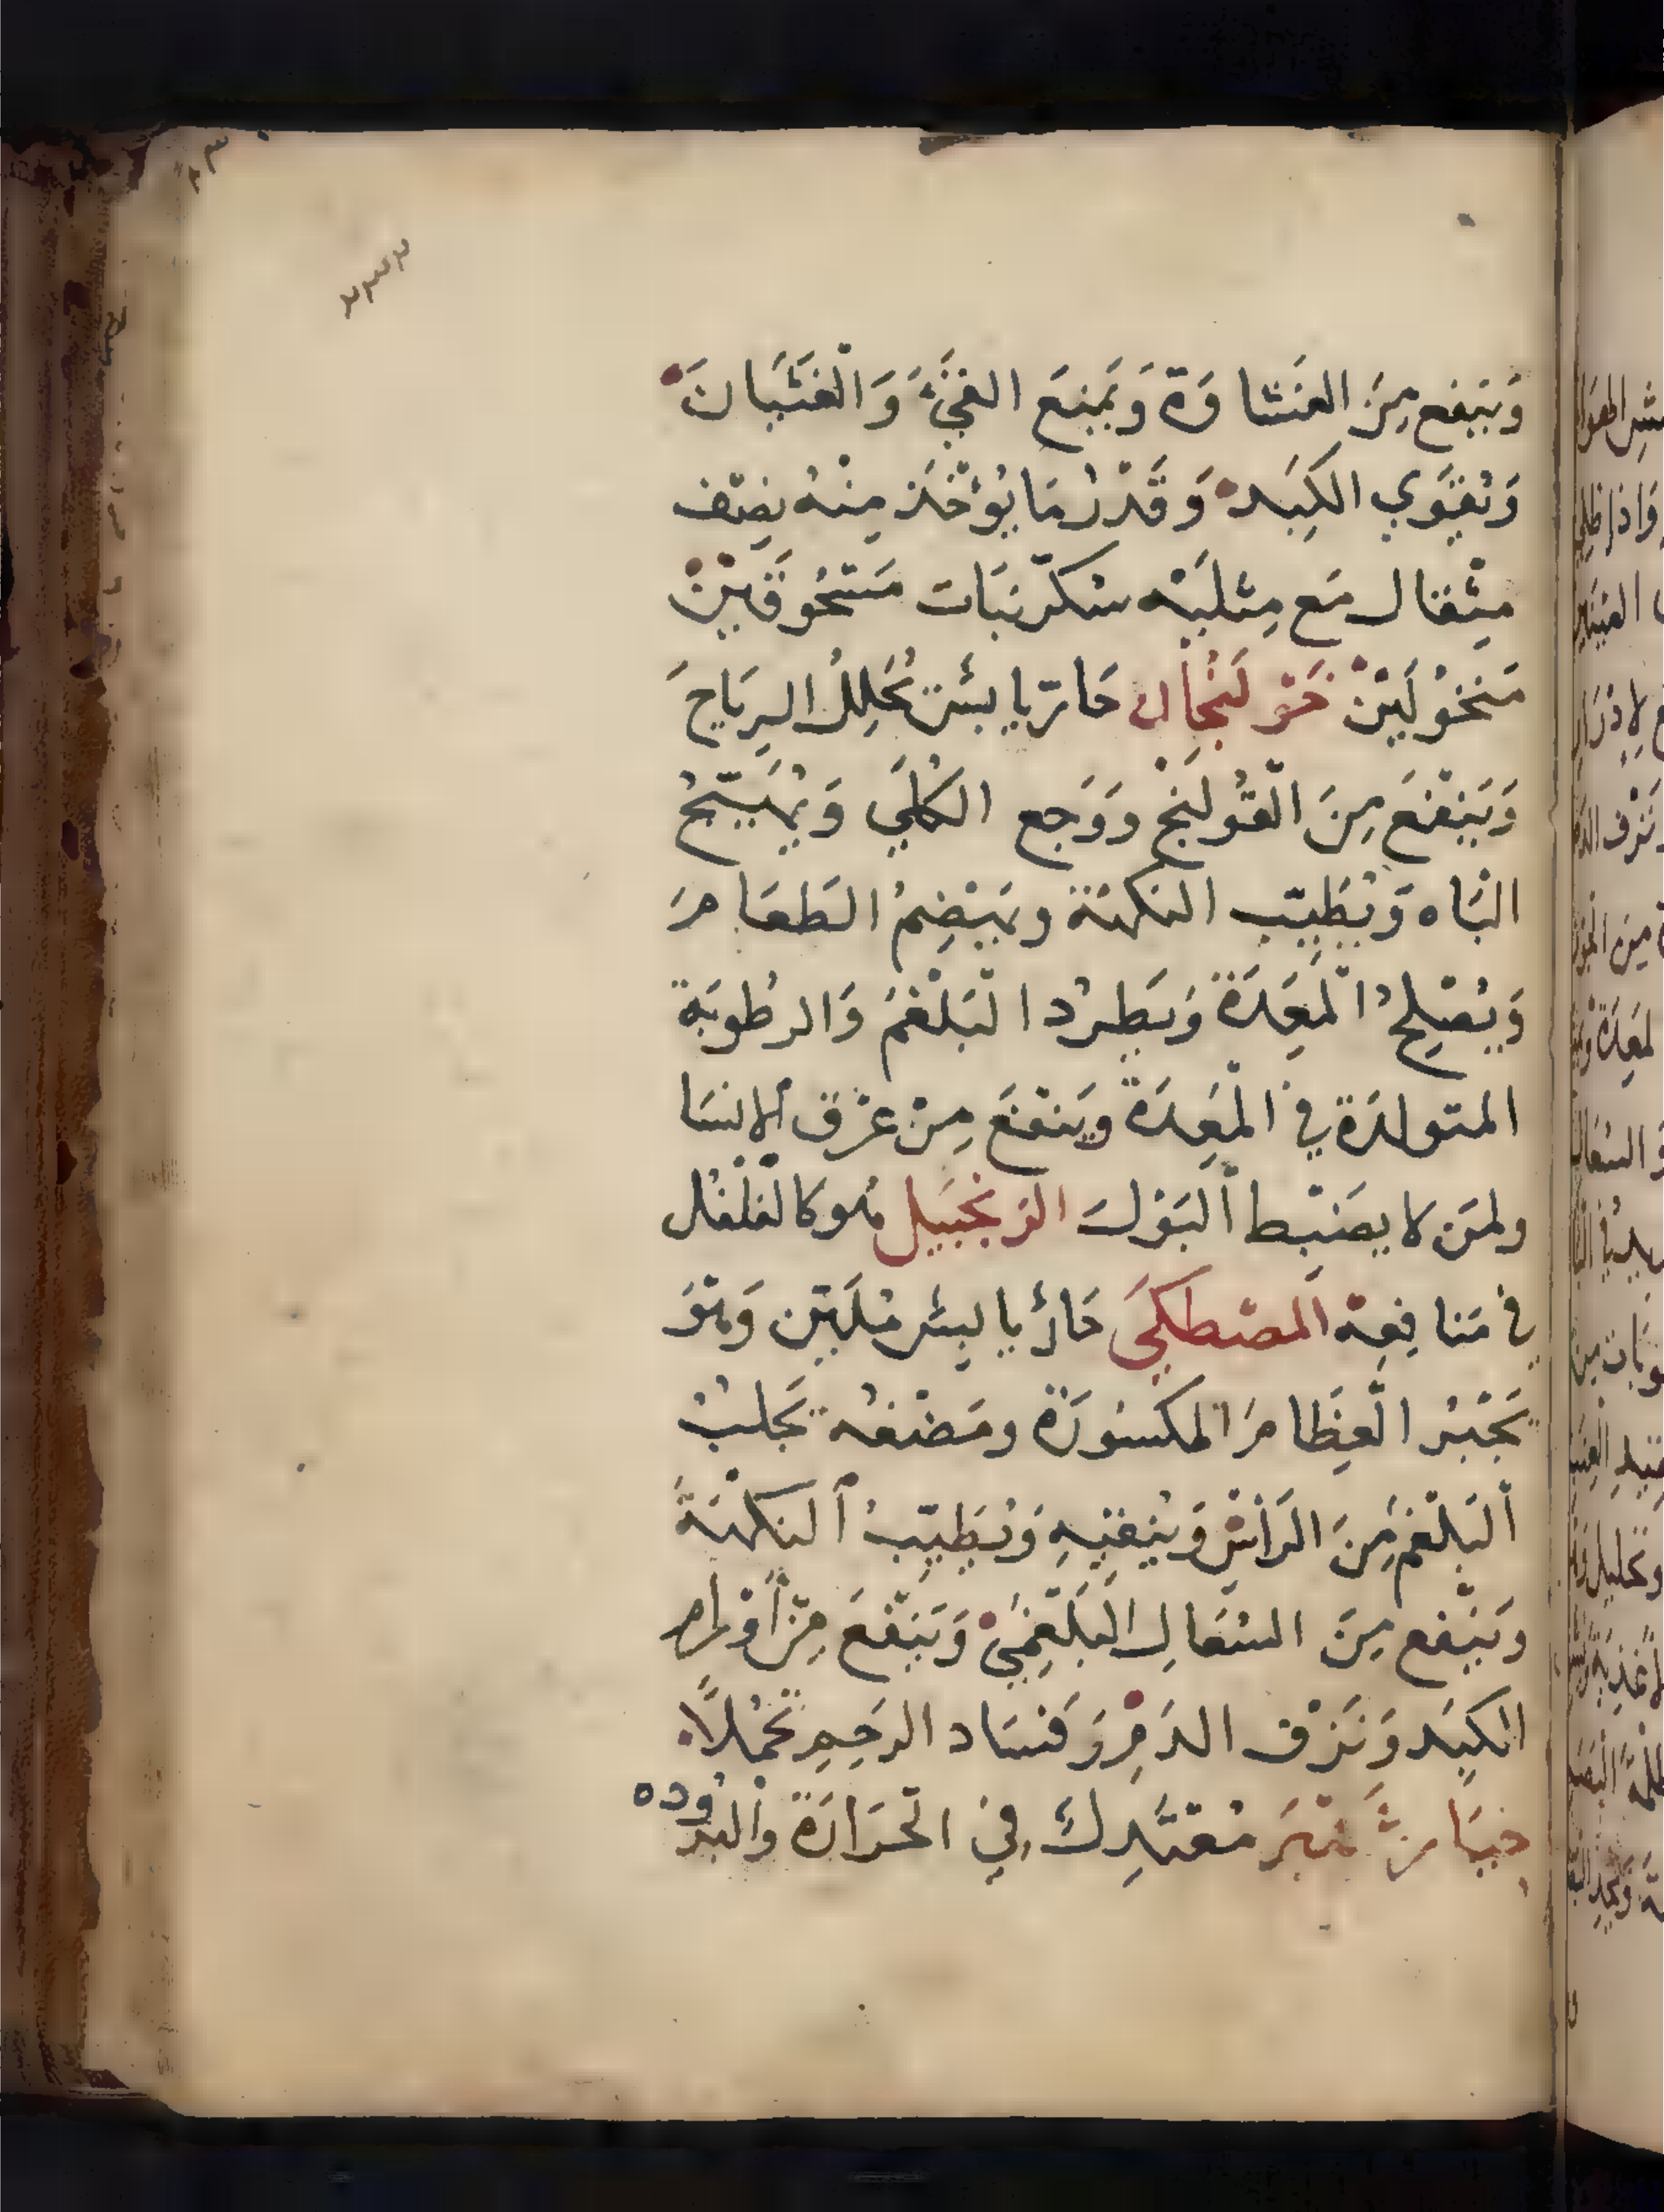 ٢٣٢
وَيَنفع مِنَ الغشَاوَة وَيَمنعَ القَيْءَ وَالْغَثَيَانَ
وَيُقَوّي الكِبَد وَقَدْرُ مَا يُؤْخَذ مِنْهُ نِصْف
مِثْقال مَع مِثلَيْه سُكّر نبَات مَسْحُوقَيْن
مَنخُولَيْنْ خَوْلَنْجَال حَارّ يابسْ يُحَلِلُ الرِيَاحَ
وَيَنْفَعَ مِنَ الْقُولَنْج وَوَجع الكُلَي وَيُهَيّجُ
الْبَاه وَيُطَيّب النكهَة ويَهْضِمُ الطَعَامَ
وَيُصْلِحُ الْمعِدَة وَيَطرُد الْبَلْغَمَ وَالرطُوبَة
المتولدَة في الْمعِدَة وَيَنْفَعَ مِنْ عِرْق الانسَا
ولمَن لا يَضْبط الْبَوْلَ الزنجَبيل هُو كالفلْفل
في مَنافِعِهْ المصْطكَي حَارُ يابسْ مُلَيّن وَهْوَ
يَجْبُر الْعِظَامَ المكسُورَة ومَضْغهُ يَجلبُ
الْبَلْغَم مِنَ الرَأسْ وَيُنقيهِ وَيُطَيّبُ النكهَةُ
وَيَنْفع مِنَ السُعَالِ البَلْغَمِيْ وَيَنْفَعَ مِنْ أَوْرام
الكَبِد وَنَزْف الدَمْ وَفَسَاد الرَحِمِ تَحَمُلاً
خيَار شَنْبَر مُعْتَدِلُ في الْحَرَارَة وَالْبرُوده